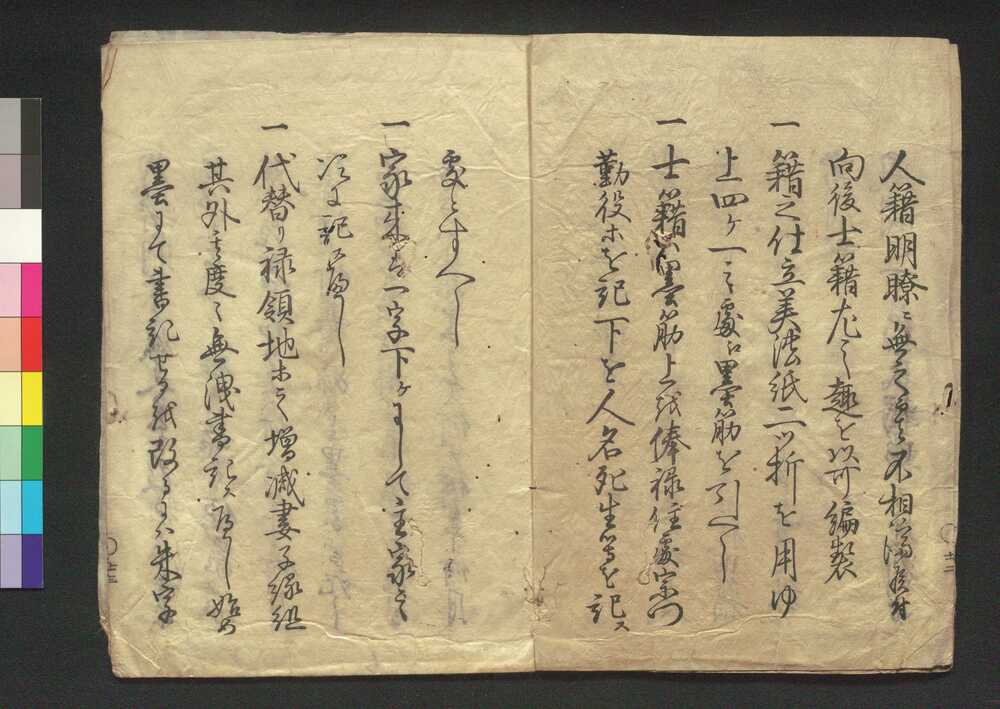 人籍明瞭ニ無之テハ不相済候付
向後士籍左之趣を以可編製
一籍之仕立美濃紙二ツ折を用ゆ
上四ケ一之處に墨筋を引へし
一士籍ハ墨筋上を俸禄住處宗門
勤役等を記下を人名死生等を記ス
處とすへし
一家来は一字下ケにして主家之
次に記すへし
一代替り禄領地等之増減妻子縁組
其外其度々無洩書記スへし始め
墨にて書記せるを改るには朱字